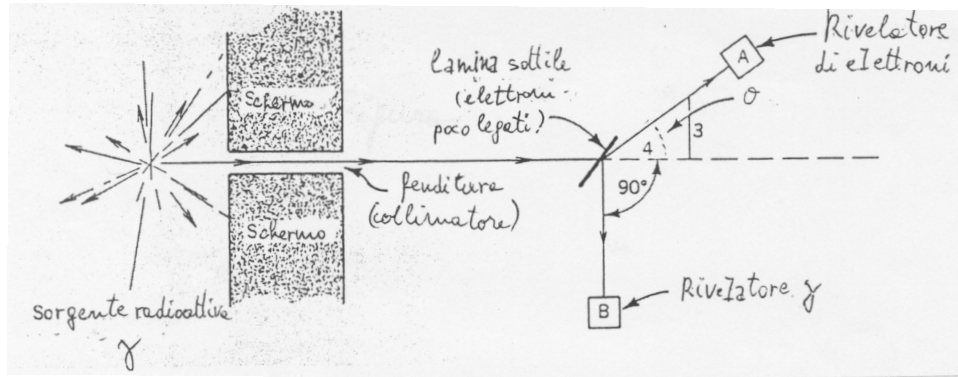 Schermo
Schermo
sorgente radioattiva
γ
fenditura
(collimatore)
lamina sottile
(elettroni
poco legati!)
A
Rivelatore
di elettroni
θ
3
4
90°
B
Rivelatore γ